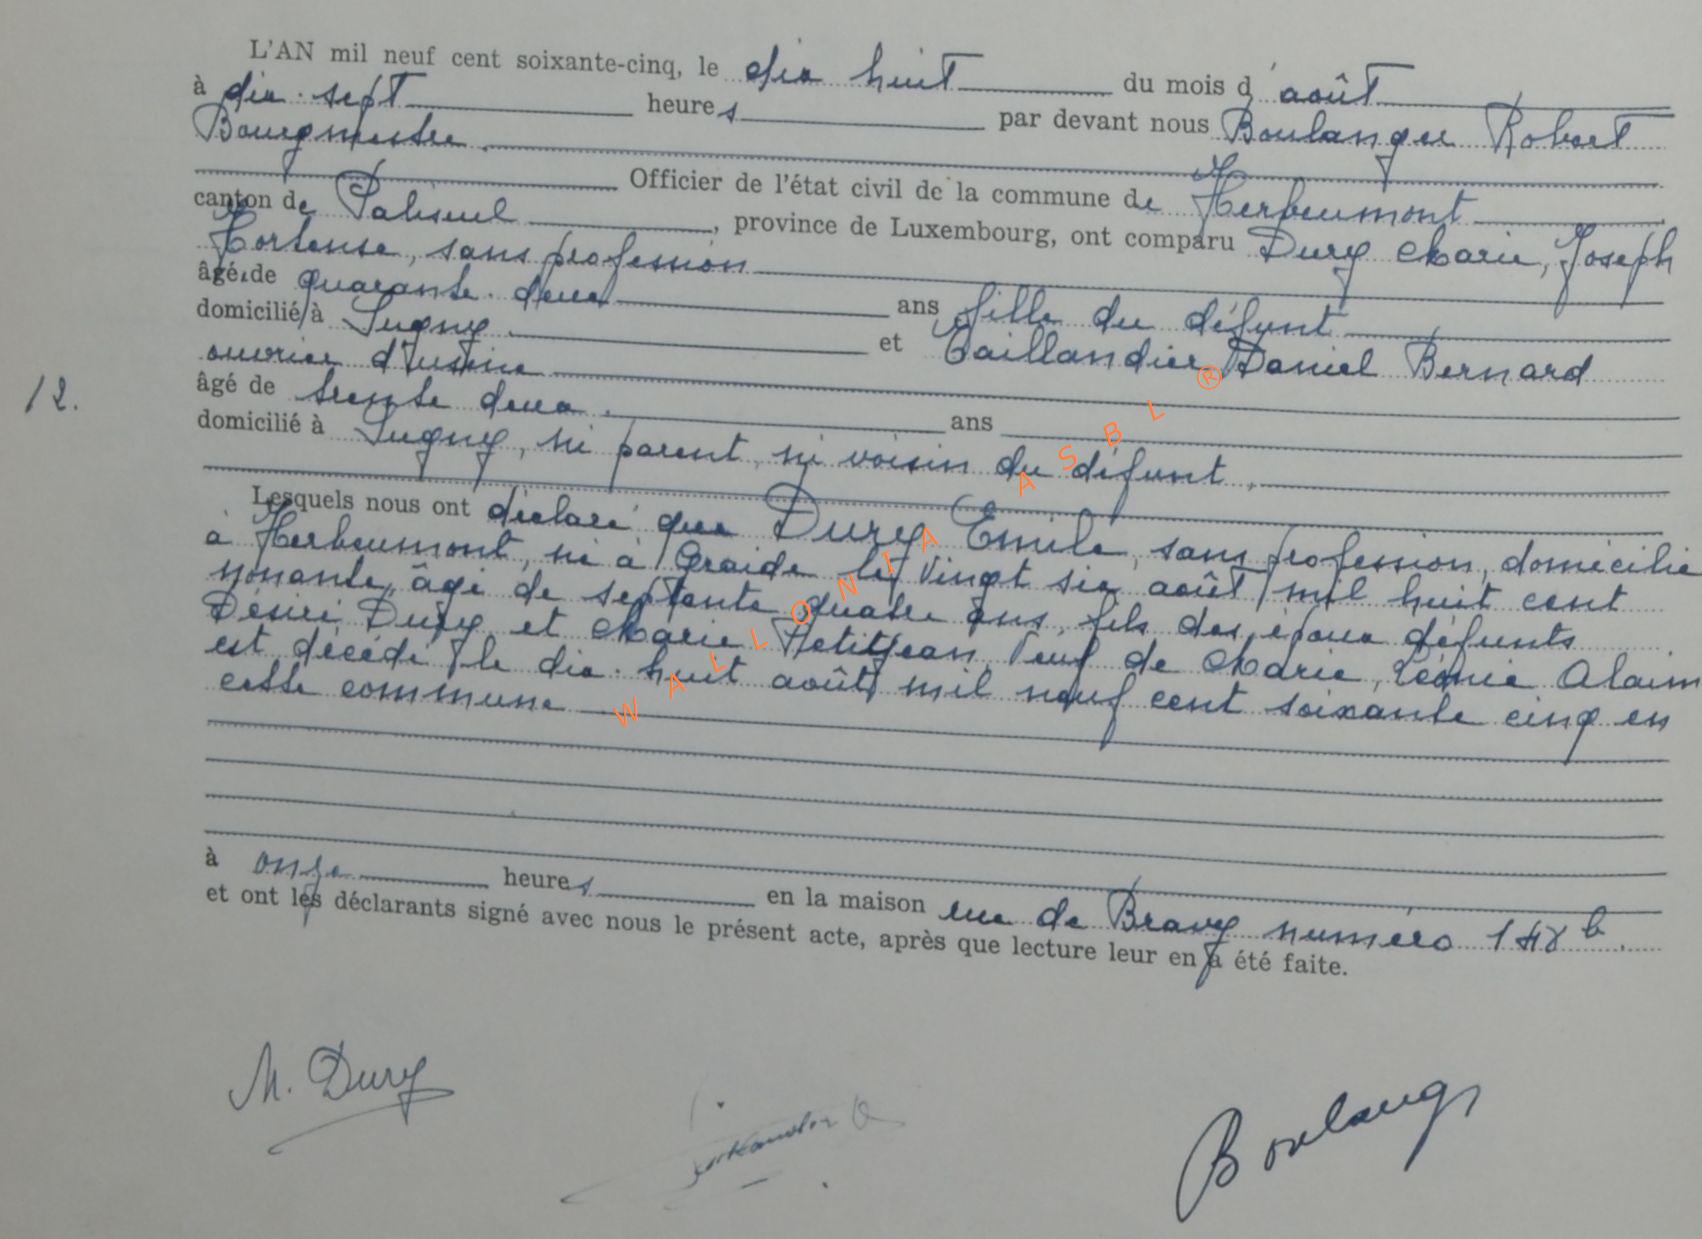 L'AN mil neuf cent soixante-cinq, le dix huit du mois d'août
à dix-sept heures par devant nous Boulanger Robert
Bourgmestre
Officier de l'état civil de la commune de Herbeumont
canton de Paliseul, province de Luxembourg, ont comparu Dury Marie, Joseph
Hortense, sans profession
âgée de quarante-deux ans fille du défunt
domicilié à Sugny. et Taillandier Daniel Bernard
ouvrier d'usine
12.
âgé de trente deux. ans
domicilié à Sugny, ni parent, ni voisin du défunt.
Lesquels nous ont déclaré que Dury Emile, sans profession, domicilié
à Herbeumont, né à Graide le vingt six août mil huit cent
nonante, âgé de septante quatre ans, fils des époux défunts
Désiré Dury et Marie Petitjean, Veuf de Marie, Léonie Alaim
est décédé le dix-huit août mil neuf cent soixante cinq en
cette commune
à onze heures en la maison rue de Bravy numéro 148 b.
et ont les déclarants signé avec nous le présent acte, après que lecture leur en a été faite.
M. Dury
Boulanger
WALLONIA ASBL ®